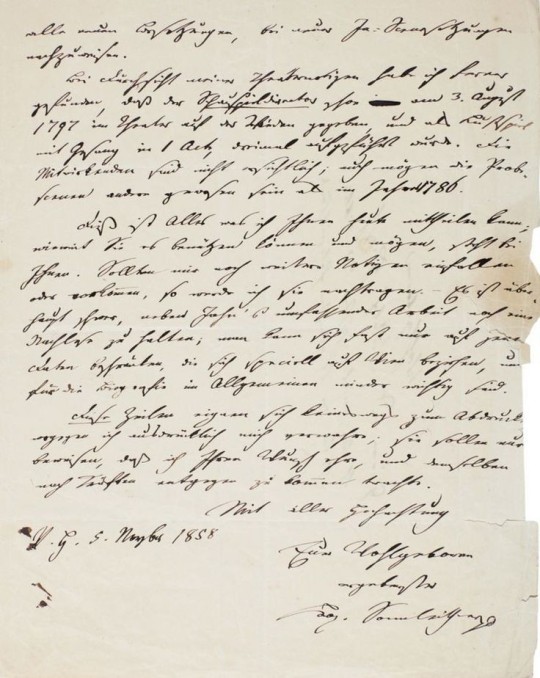 alle neuen Besetzungen, bei neuer In-Scenesetzungen
nachzuweisen.
Bei Durchsicht meiner Theaternotizen habe ich ferner
gefunden, daß der Schauspieldirektor schon am 3. August
1797 im Theater auf der Wieden gegeben, und als Lustspiel
mit Gesang in 1 Act, dreimal aufgeführt wurde. Die
Mitwirkenden sind nicht ersichtlich; auch mögen die Prob-
scenen andere gewesen sein als im Jahre 1786.
Dieß ist Alles was ich Ihnen heute mittheilen kann,
wieweit Sie es benützen können und mögen, steht bei
Ihnen. Sollten mir noch weitere Notizen einfallen
oder vorkommen, so werde ich sie nachtragen. – Es ist über-
haupt schwer, neben Jahn's umfassender Arbeit noch eine
Nachlese zu halten; man kann sich fast nur auf jene
Daten beschränken, die sich speciell auf Wien beziehen, und
für die Biografie im Allgemeinen minder wichtig sind.
Diese Zeilen eignen sich keineswegs zum Abdruck
wogegen ich ausdrücklich mich verwahre; sie sollen nur
beweisen, daß ich Ihren Wunsch ehre, und demselben
nach Kräften entgegen zu kommen trachte.
Mit aller Hochachtung
5. 1858
Euer Wohlgeboren
ergebenster
Sonnleithner